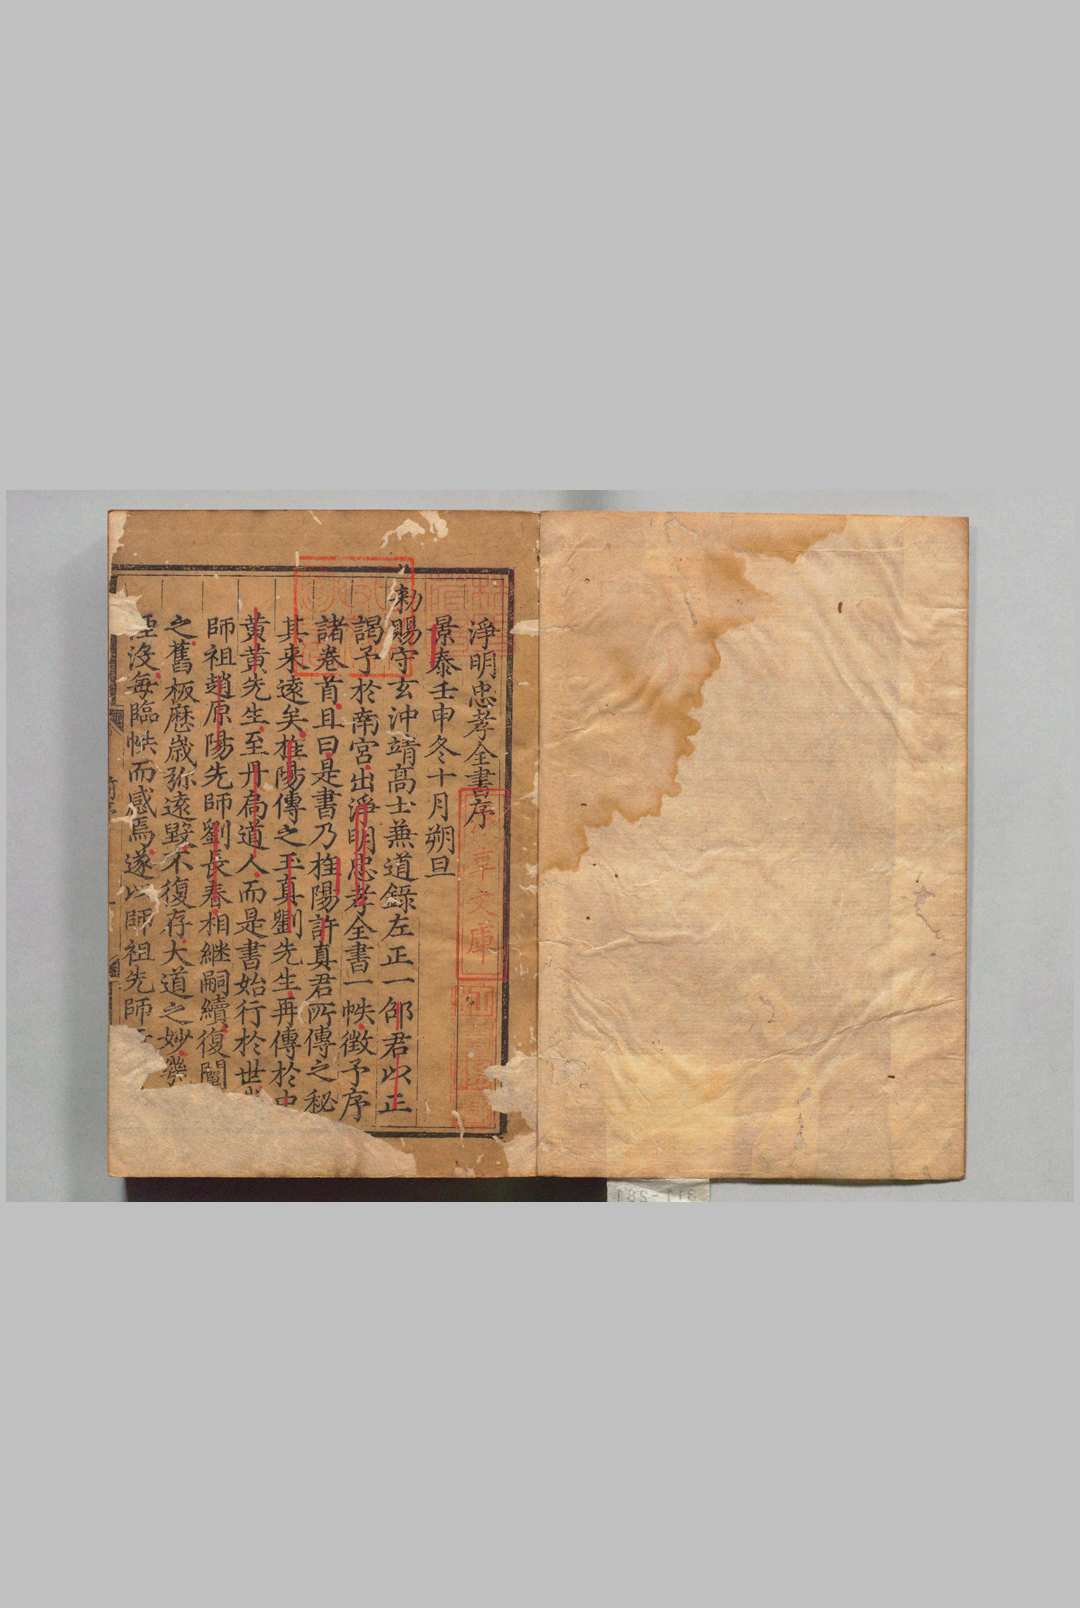 淨明忠孝全書序
景泰壬申冬十月朔旦
勑賜守玄沖靖高士兼道錄左正一邵君以正
謁予於南宮出淨明忠孝全書一帙徵予序
諸卷首且曰是書乃旌陽許真君所傳之秘
其来遠矣旌陽傳之玉真劉先生再傳於中
黃黃先生至丹扃道人而是書始行於世
師祖趙原陽先師劉長春相継嗣續復闡
之舊板歷歲弥遠毀不復存大道之妙幾
湮沒每臨帙而感焉遂以師祖先師
文庫
311-281